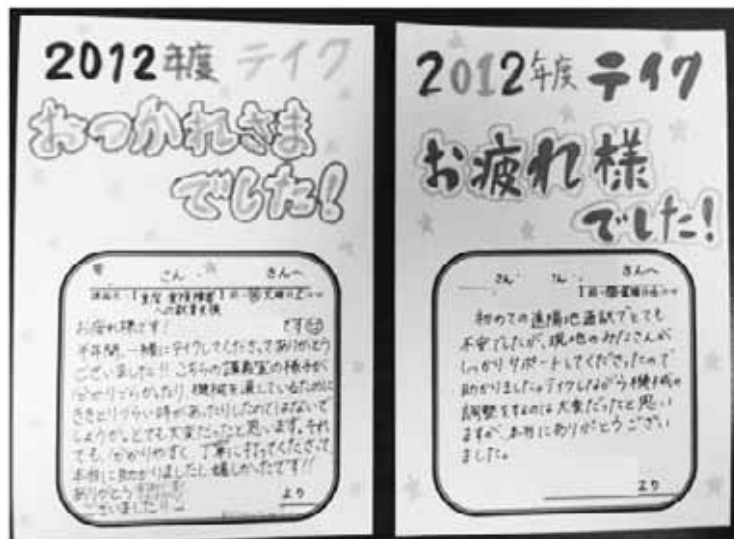 2012年度 テイク
おつかれさま
でした!
さん さんへ
への教育支援
お疲れ様です!
半年間、一緒にテイクしてくださってありがとう
ございました!! こちらの講義室の様子が
分かりづらかったり、機械を通しているために
ききとりづらい時があったりしたのではないで
しょうか。とても大変だったと思います。それ
でも、分かりやすく、丁寧に打ってくださって、
本当に助かりましたし、嬉しかったです!!
ありがとう
ございました!!
より
2012年度 テイク
お疲れ様
でした!
さん さん さんへ
初めての遠隔地通訳でとても
不安でしたが、現地のみなさんが
しっかりサポートしてくださったので
助かりました。テイクしながら機械の
調整をするのは大変だったと思い
ますが、本当にありがとうござい
ました。
より